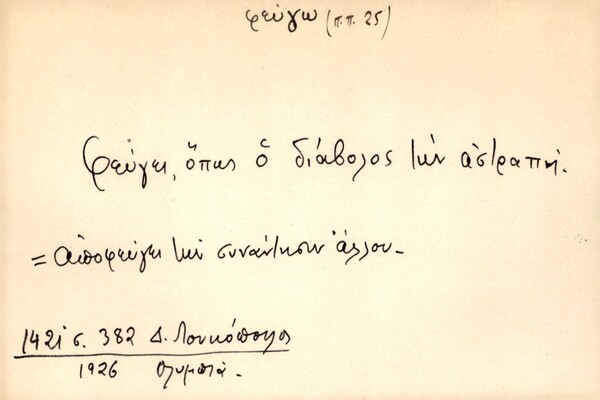 φεύγω (π.π. 25)
Φεύγει, ὅπως ὁ διάβολος τὴν ἀστραπή.
= ἀποφεύγει τὴν συνάντησιν ἄλλου.
1421 σ. 382 Δ. Λουκόπουλος
1926